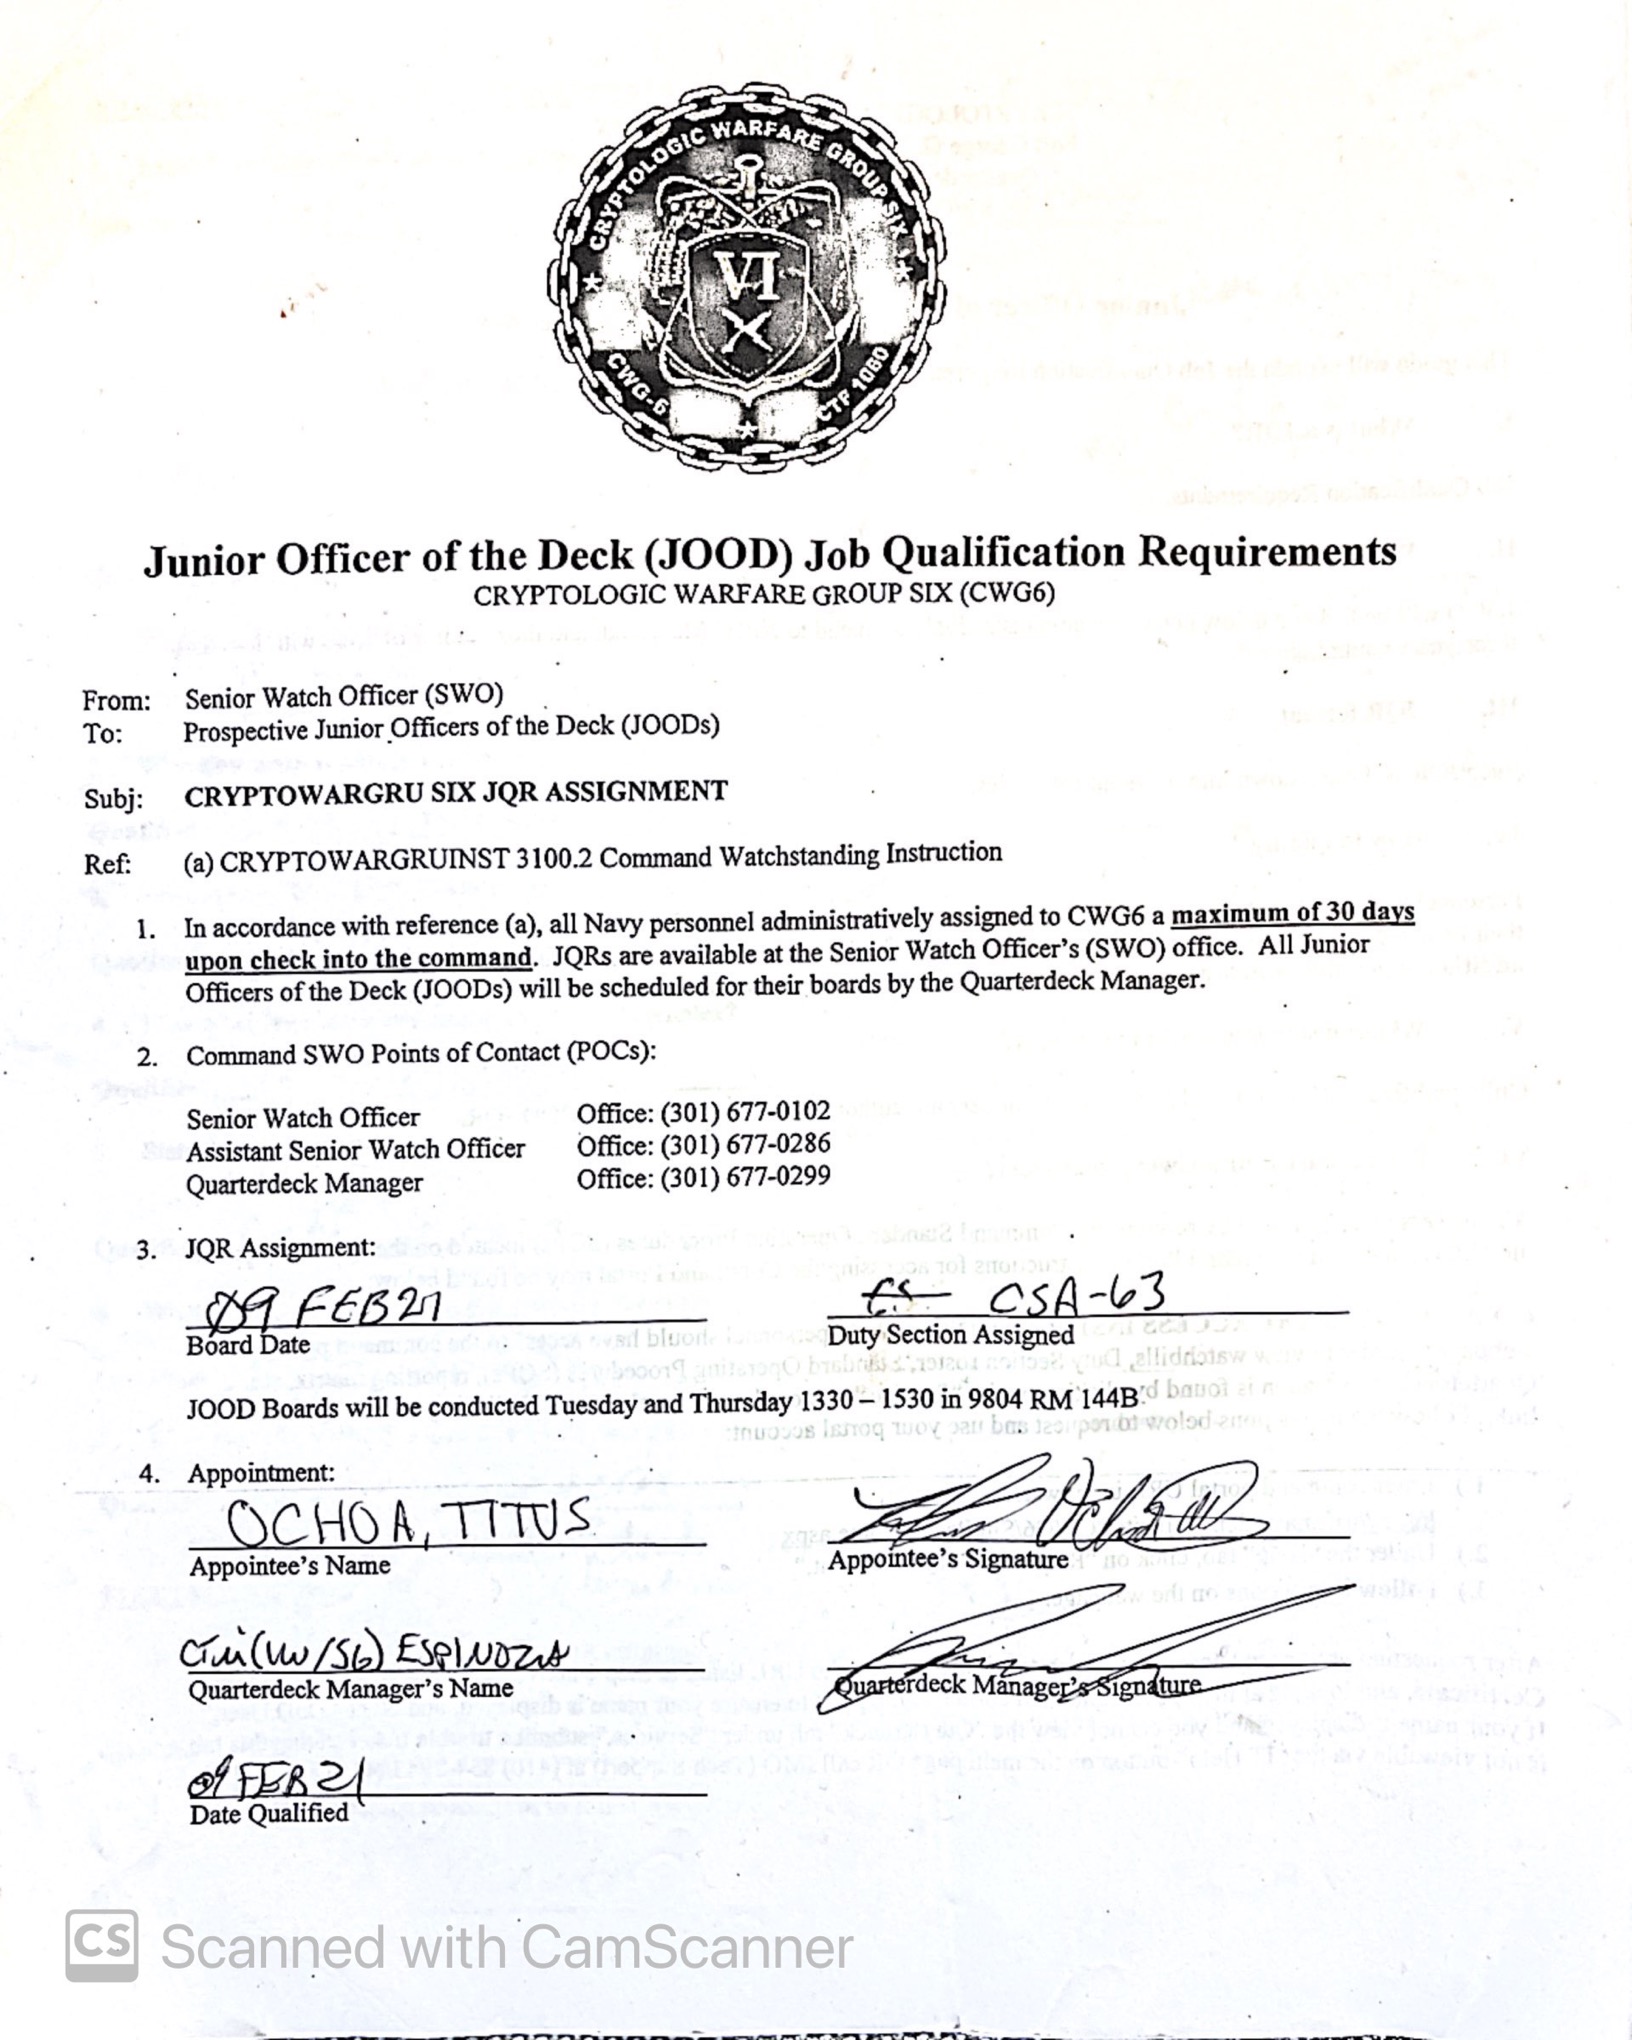 CRYPTOLOGIC WARFARE GROUP SIX
VI
CWG-6
CTF 1060
Junior Officer of the Deck (JOOD) Job Qualification Requirements
CRYPTOLOGIC WARFARE GROUP SIX (CWG6)
From: Senior Watch Officer (SWO)
To: Prospective Junior Officers of the Deck (JOODs)
Subj: CRYPTOWARGRU SIX JQR ASSIGNMENT
Ref: (a) CRYPTOWARGRUINST 3100.2 Command Watchstanding Instruction
1. In accordance with reference (a), all Navy personnel administratively assigned to CWG6 a maximum of 30 days
upon check into the command. JQRs are available at the Senior Watch Officer's (SWO) office. All Junior
Officers of the Deck (JOODs) will be scheduled for their boards by the Quarterdeck Manager.
2. Command SWO Points of Contact (POCs):
Senior Watch Officer Office: (301) 677-0102
Assistant Senior Watch Officer Office: (301) 677-0286
Quarterdeck Manager Office: (301) 677-0299
3. JQR Assignment:
09 FEB21 CSA-63
Board Date Duty Section Assigned
JOOD Boards will be conducted Tuesday and Thursday 1330 – 1530 in 9804 RM 144B.
4. Appointment:
OCHOA, TITUS
Appointee's Name Appointee's Signature
ESPINOZA
Quarterdeck Manager's Name Quarterdeck Manager's Signature
09 FEB 21
Date Qualified
CS Scanned with CamScanner